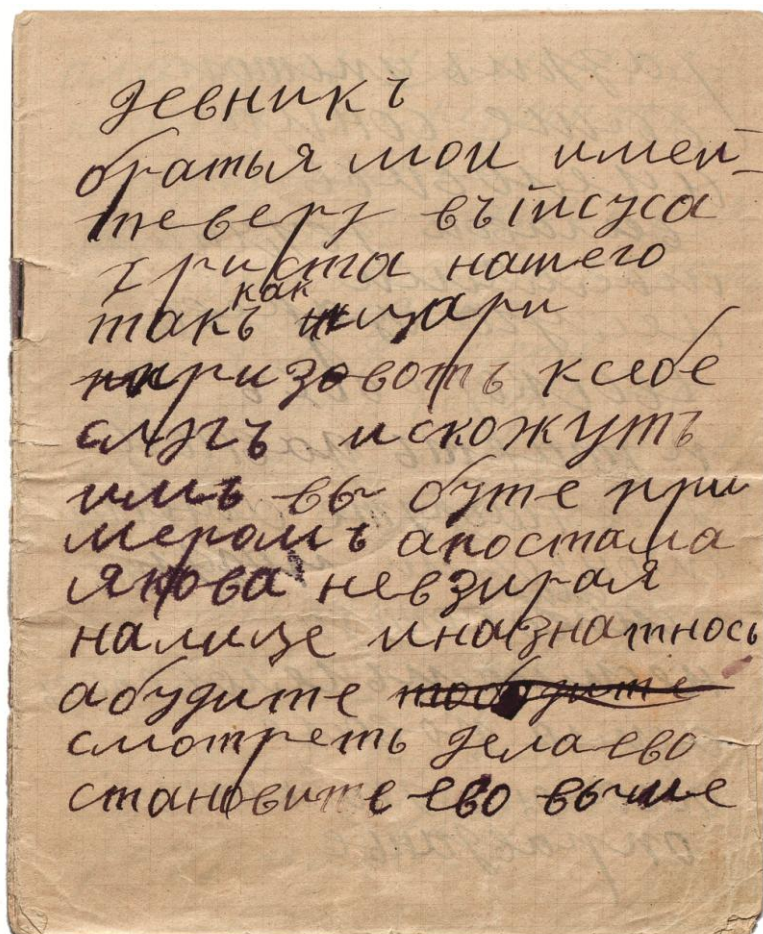 девникъ
братья мои имей-
те веру въ иисуса
христа нашего
такъ как цари
призовотъ к себе
слугъ и скожутъ
имъ вы буте при
мером ъ апостама
якова невзирая
налице и на знатнось
а будите
смотреть дела ево
становите ево выше